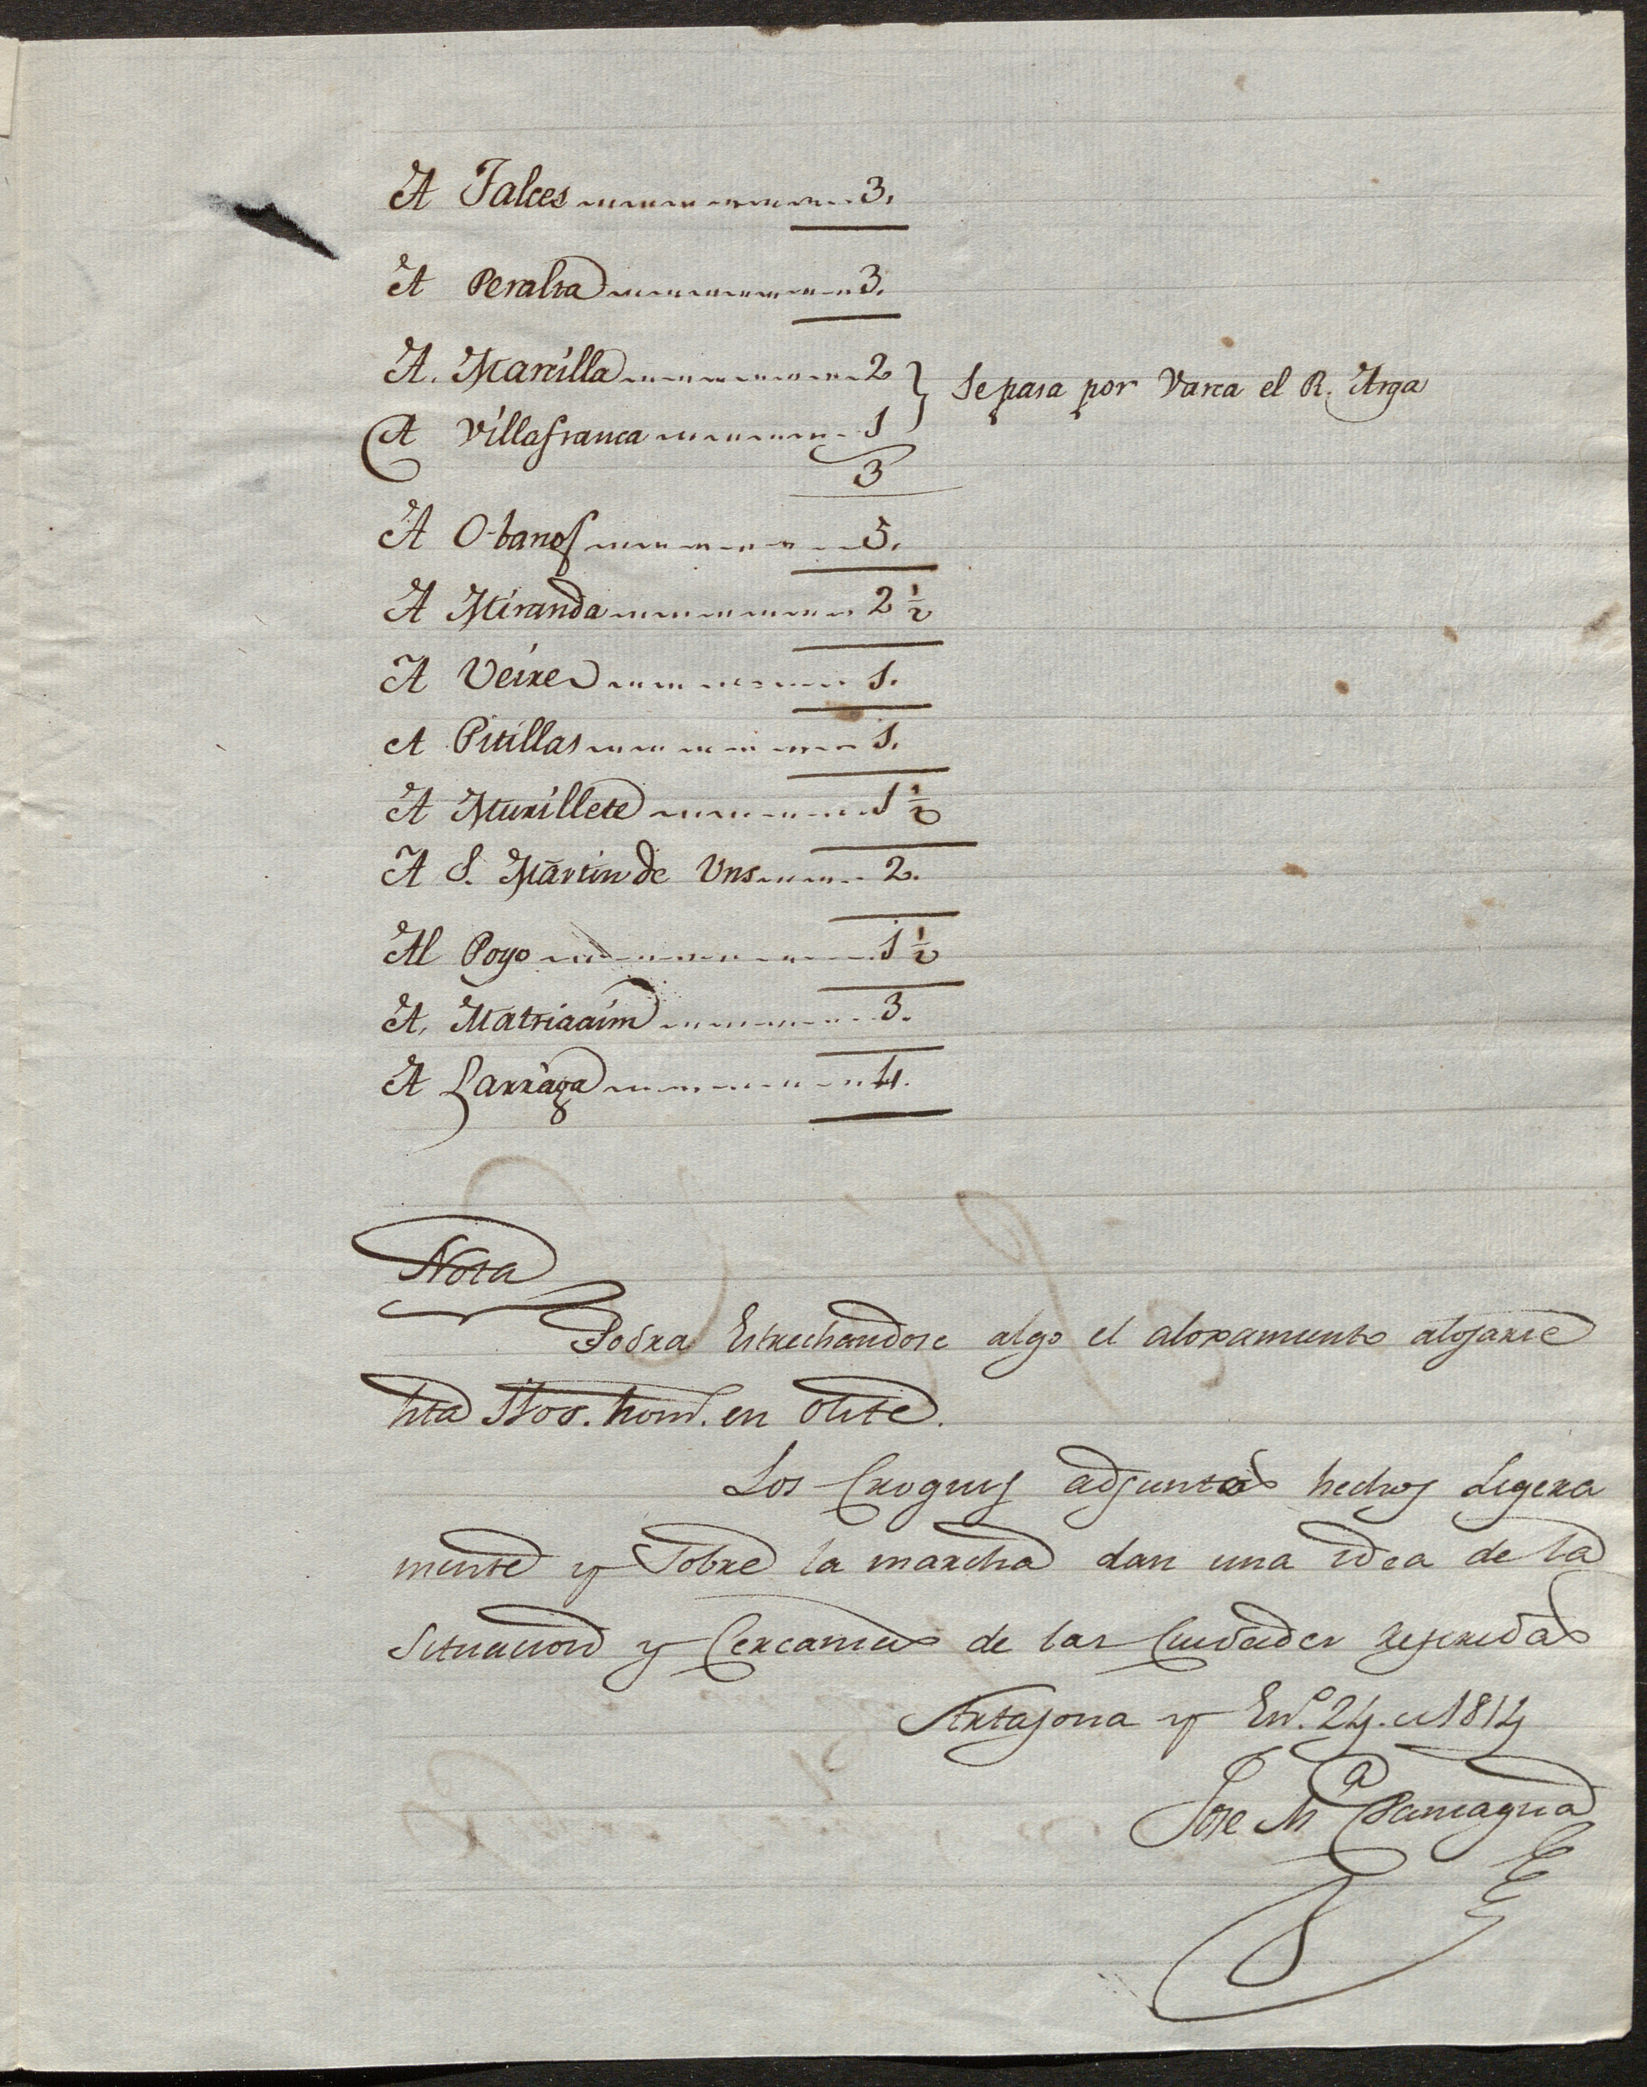 A Falces 3.
A Peralta 3.
A. Marcilla 2 } Se pasa por Varca el R. Arga
A Villafranca 1
3
A Obanos 5.
A Miranda 2 1/2
A Veire 1.
A Pitillas 1.
A Murillete 1 1/2
A S. Martin de Uns 2.
Al Poyo 1 1/2
A. Matriaain 3.
A Larraga 4.
Nota
Podra Estrechandose algo el aloxamiento alojarse
hta hom. en Olite.
Los Croquis adjuntos hechos Ligera
mente y Sobre la marcha dan una idea de la
Situacion y Cercanias de las Ciudades referidas
Artajona y En.º 24. de 1814
Jose M.ª Paniagua